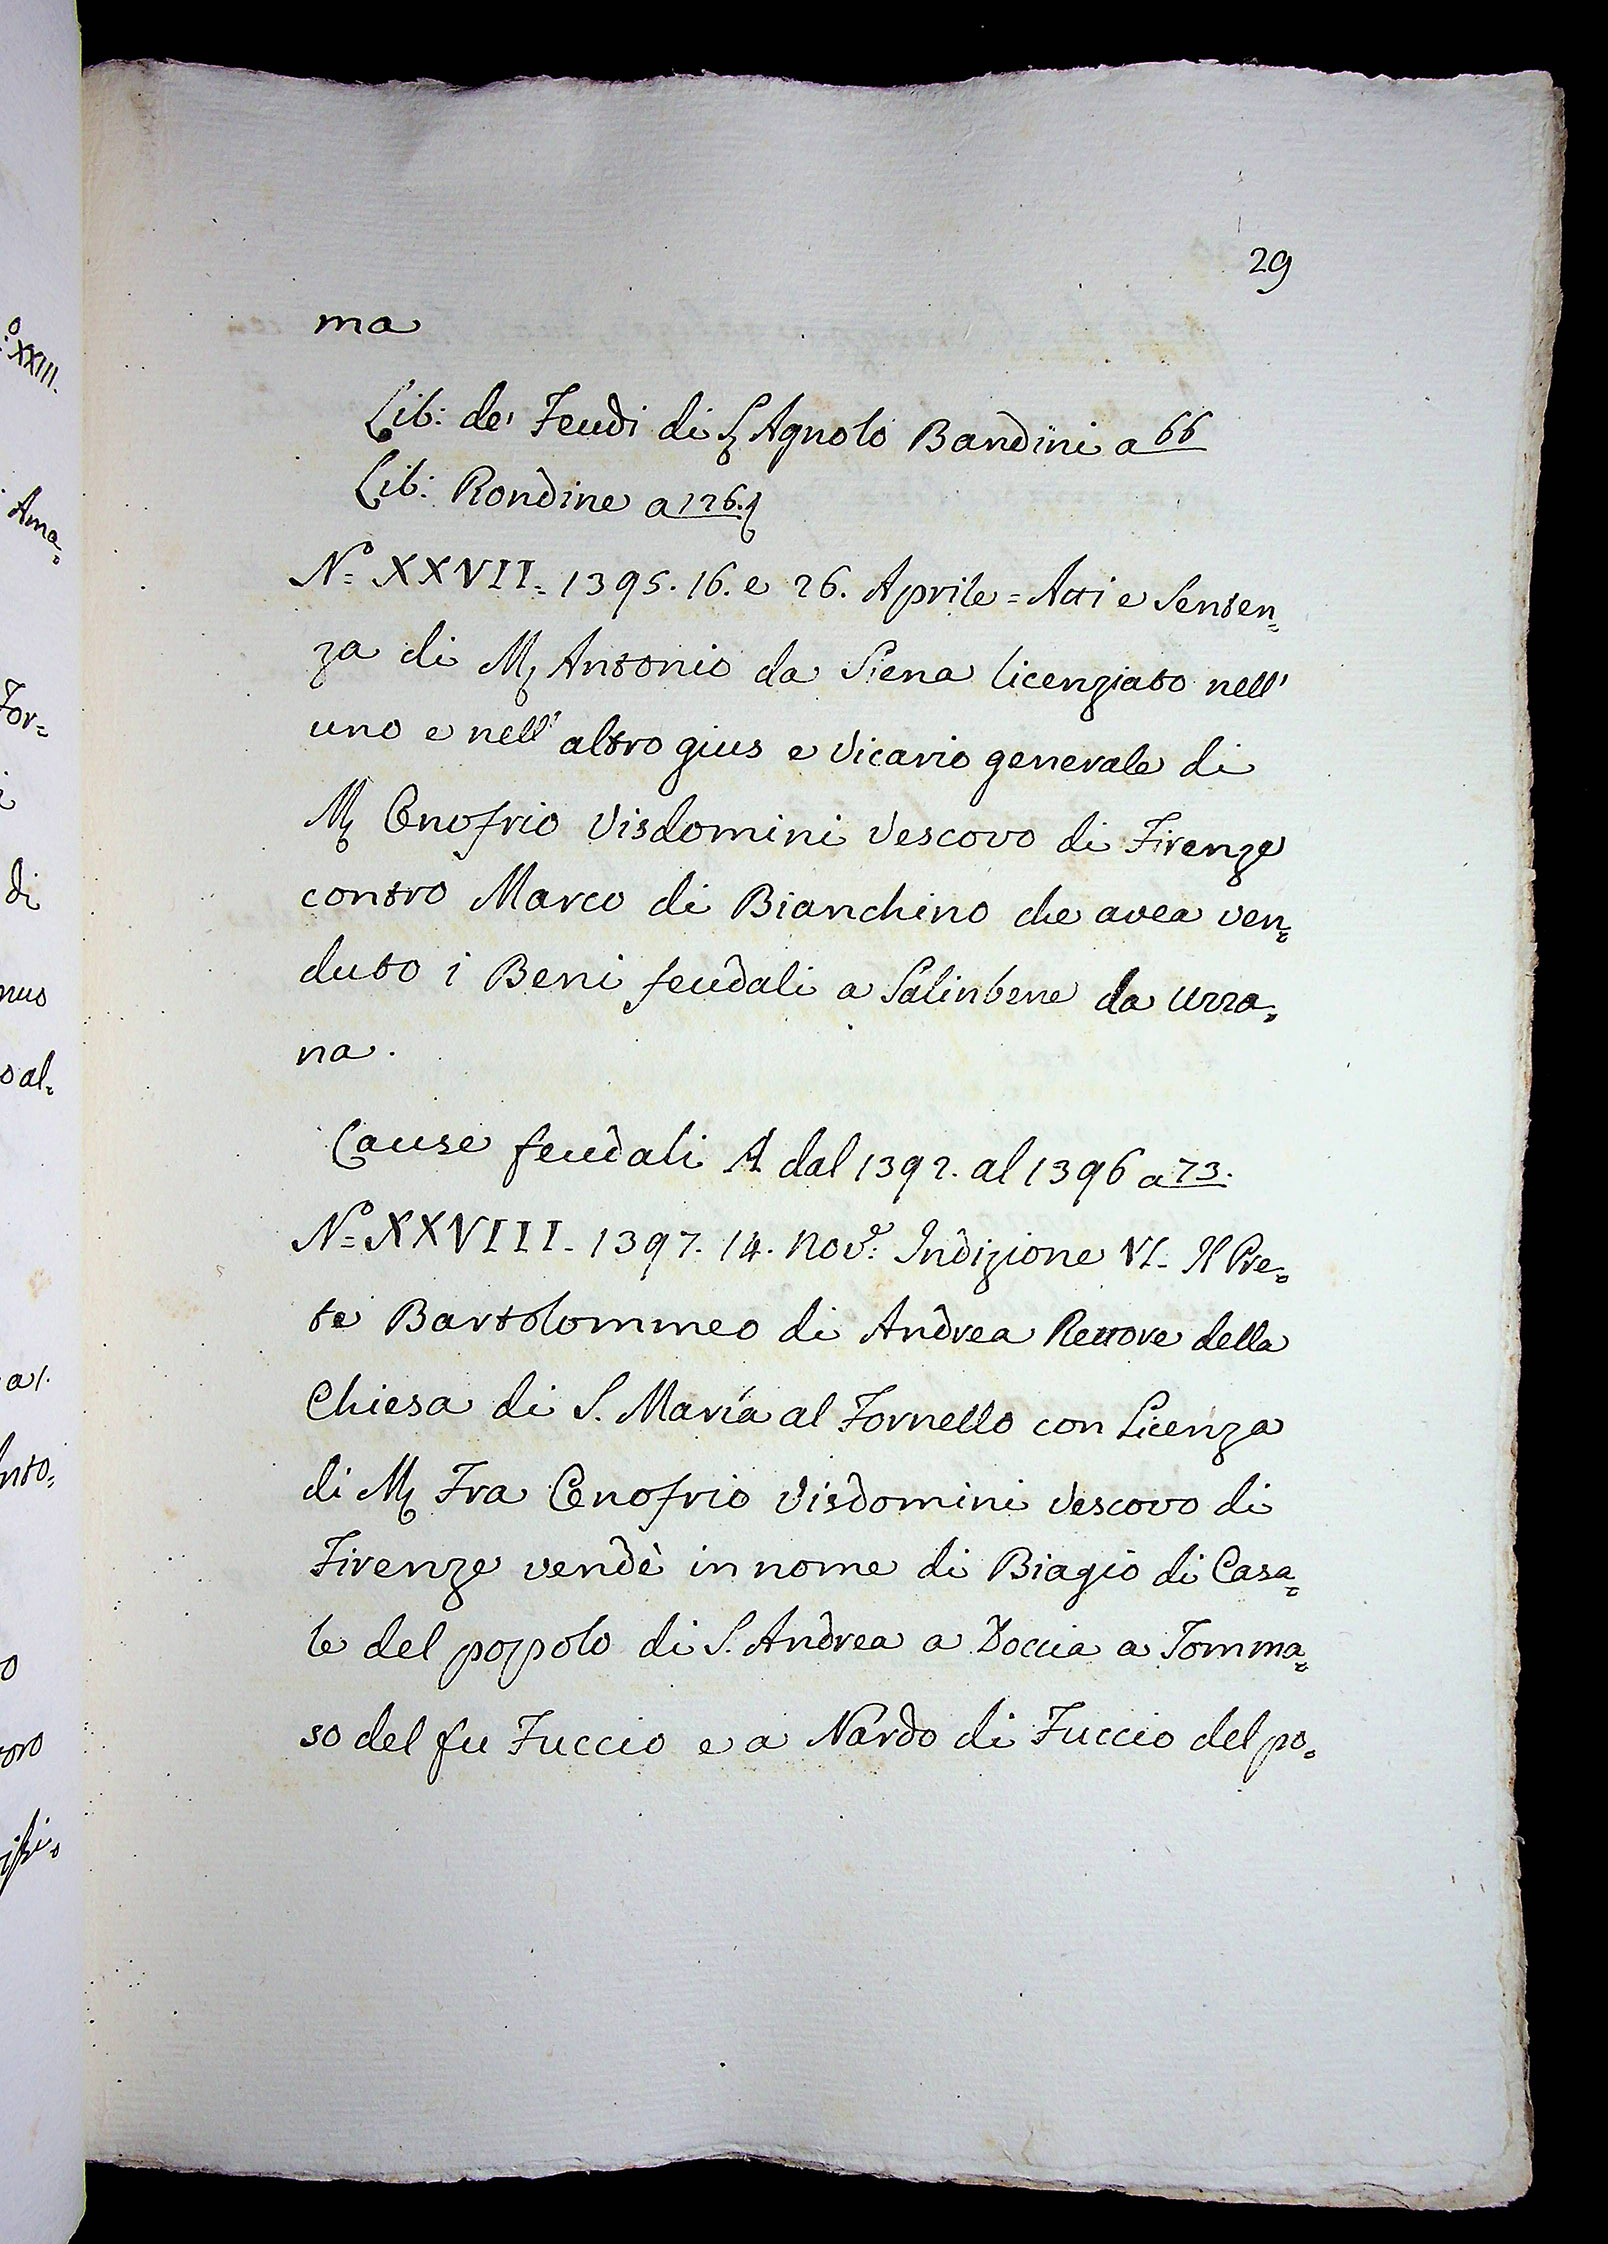 29
ma
Lib: de' Feudi di S. Agnolo Bandini a 66
Lib: Rondine a 126.
N.° XXVII = 1395. 16. e 26. Aprile = Atti e Senten=
za di M. Antonio da Siena licenziato nell'
uno e nell' altro gius e Vicario generale di
M. Onofrio Visdomini Vescovo di Firenze
contro Marco di Bianchino che avea ven=
duto i Beni feudali a Salinbene da Urra=
na.
Cause feudali A dal 1392. al 1396 a 73.
N.° XXVIII - 1397. 14. Nov.e: Indizione VI - Il Pre=
te Bartolommeo di Andrea Rettore della
Chiesa di S. Maria al Fornello con Licenza
di M. Fra Onofrio Visdomini Vescovo di
Firenze vendè in nome di Biagio di Casa=
le del popolo di S. Andrea a Doccia a Tomma=
so del fu Fuccio e a Nardo di Fuccio del po=
XXIII.
Ama=
For=
di
nus
o al=
a 1.
nto=